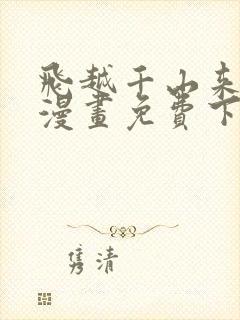 飛越千山來
漫畫免費下
隽清